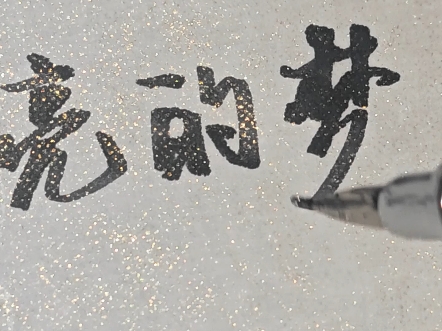 亮的梦